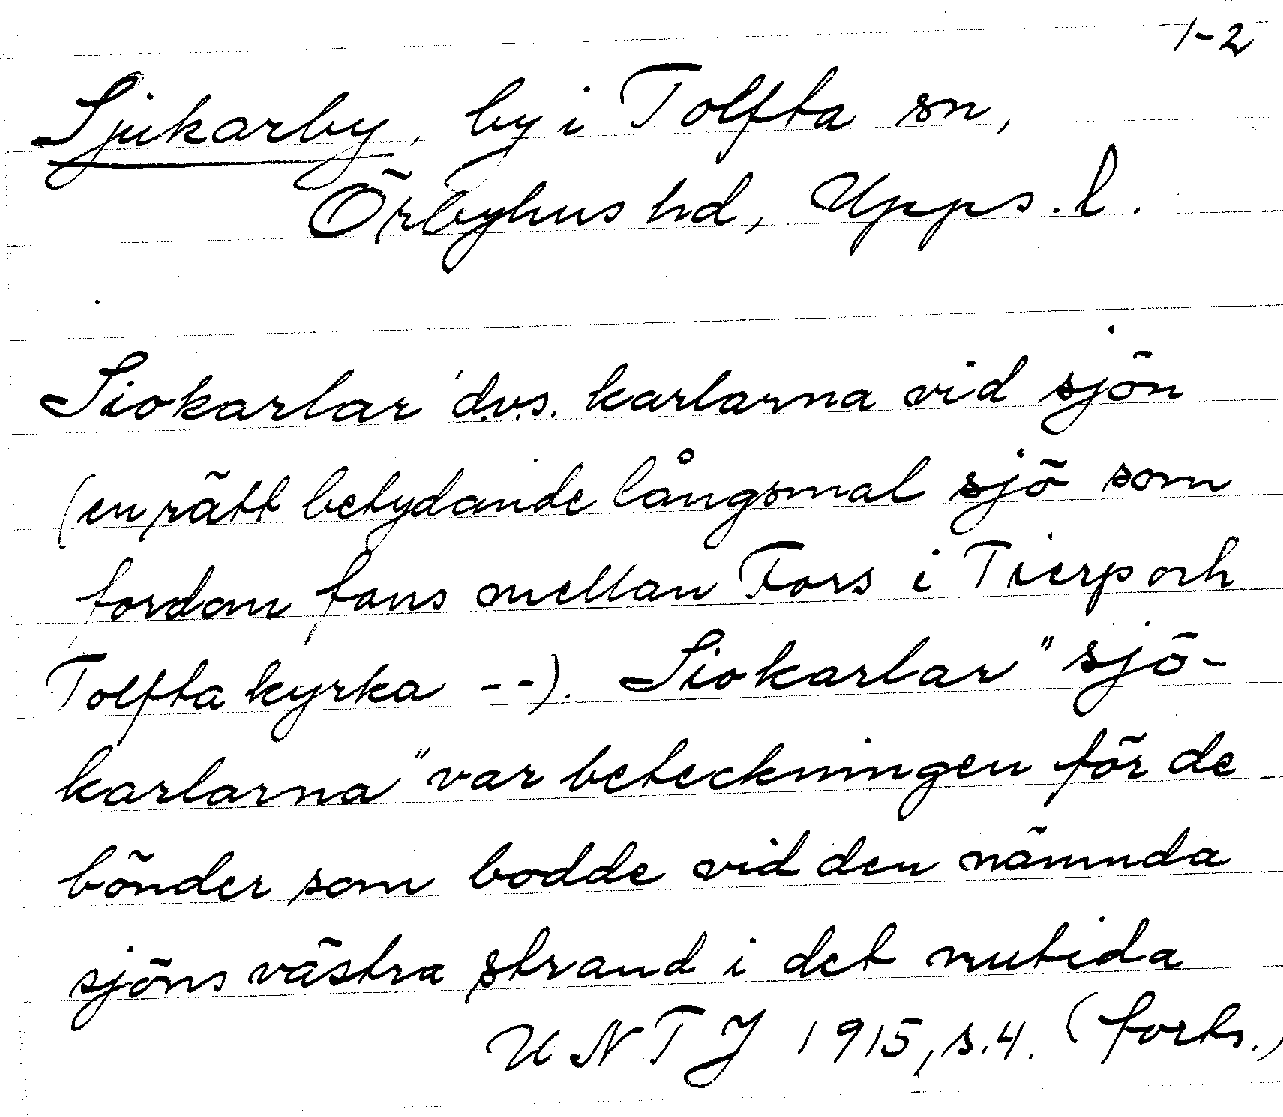 1-2
Sjukarby, by i Tolfta sn,
Örbyhus hd, Upps. l.
Siokarlar d.v.s. karlarna vid sjön
(en rätt betydande långsmal sjö som
fordom fans mellan Fors i Tierp och
Tolfta kyrka --). Siokarlar "sjö-
karlarna" var beteckningen för de
bönder som bodde vid den nämnda
sjöns västra strand i det nutida
UNTJ 1915, s.4. (forts.)